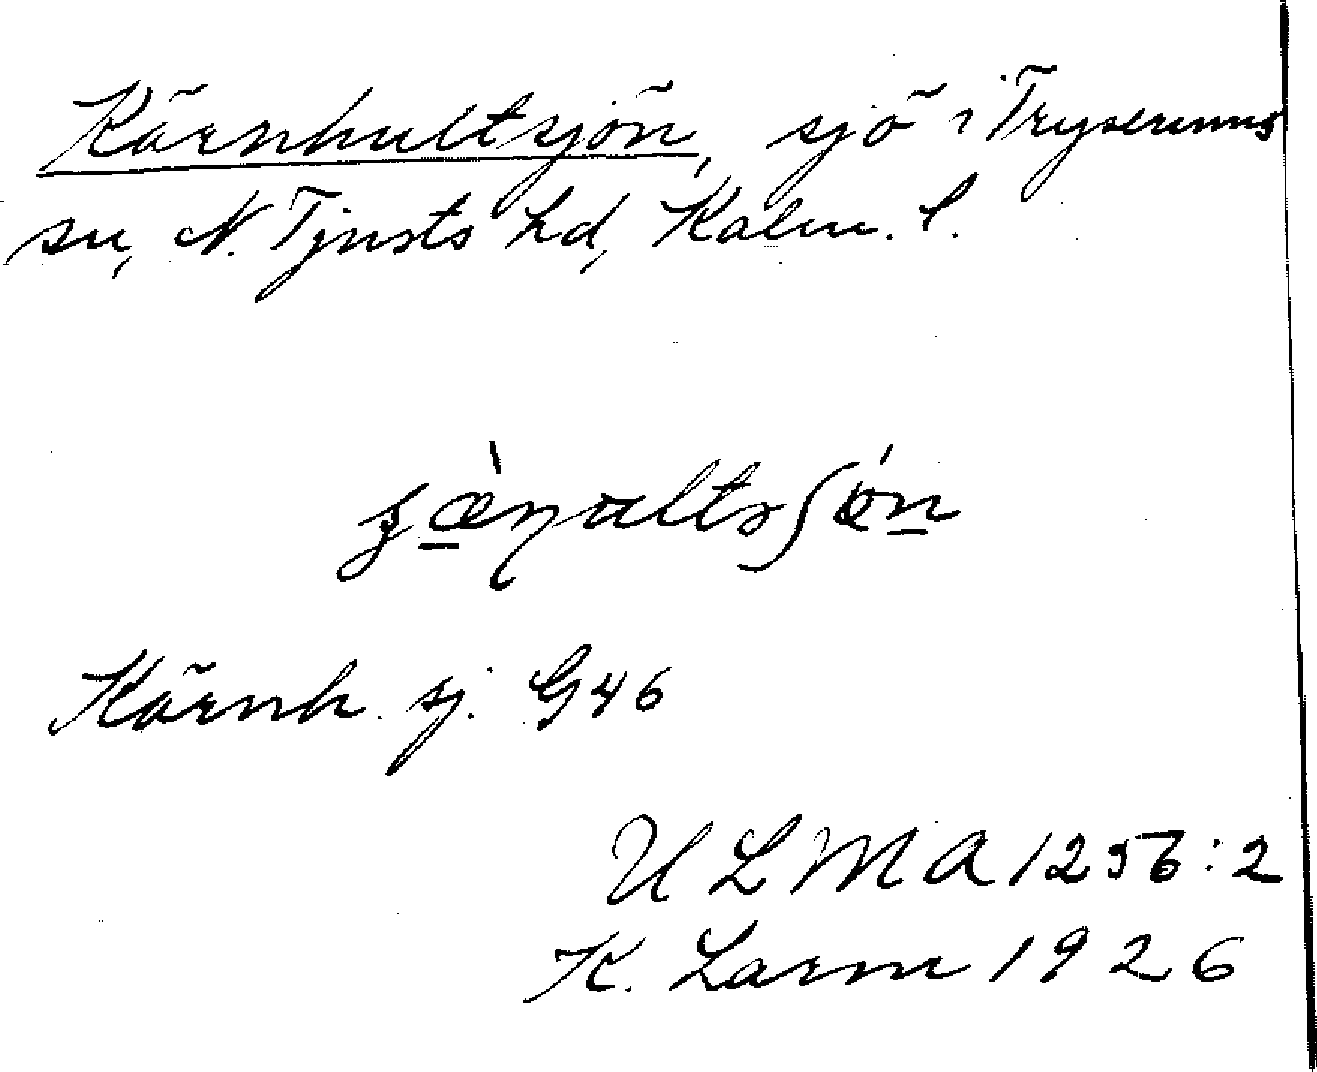 Kärnhultsjön, sjö i Tryserums
sn, N. Tjusts hd, Kalm. l.
Kärnh. sj. G46
ULMA 1256:2
K. Larm 1926